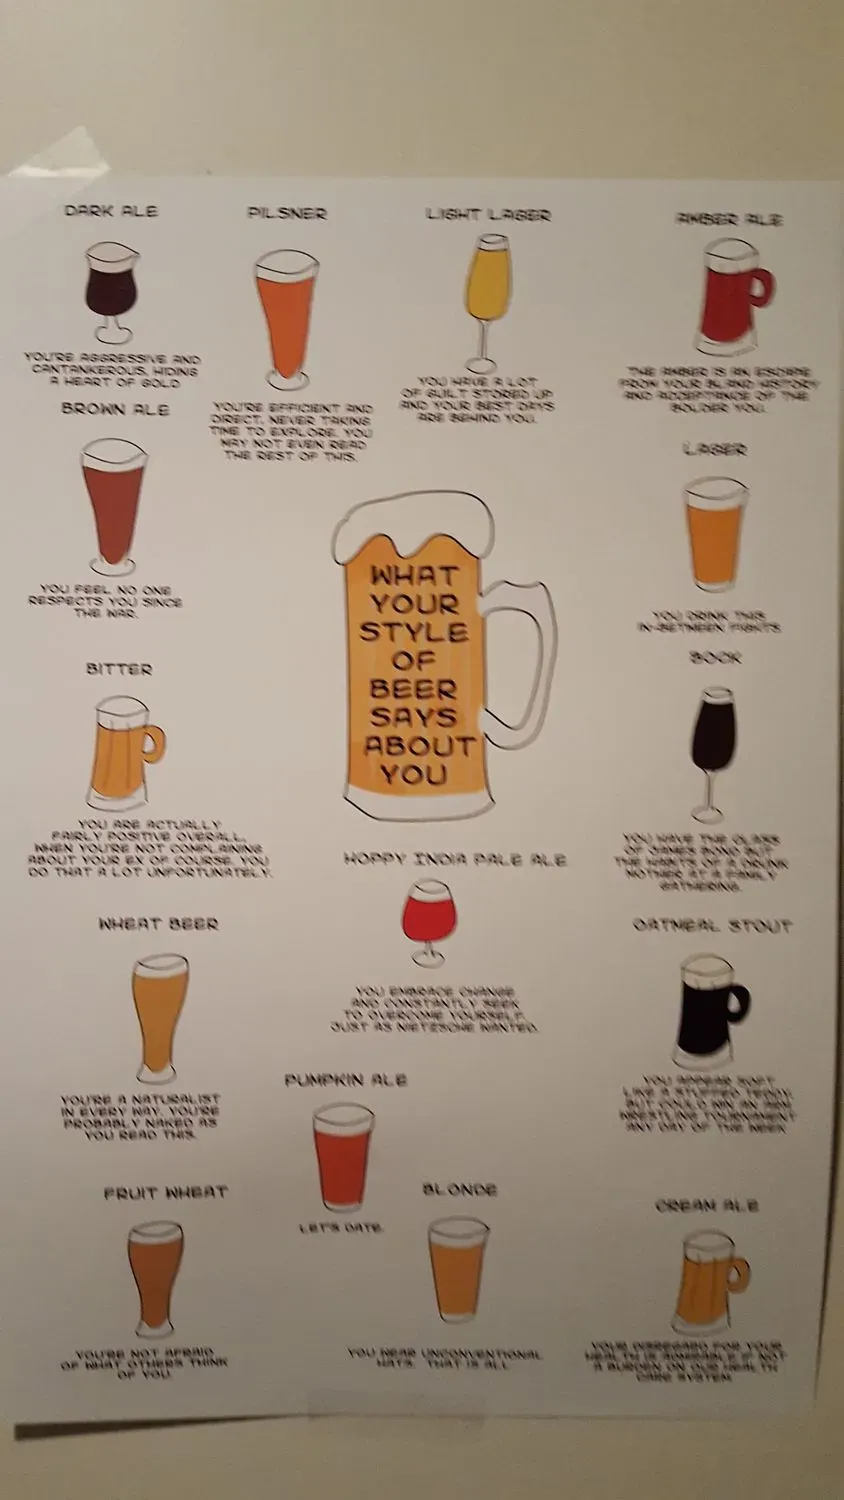 DARK ALE
YOU'RE AGGRESSIVE AND
CANTANKEROUS, HIDING
A HEART OF GOLD
PILSNER
YOU'RE EFFICIENT AND
DIRECT, NEVER TAKING
TIME TO EXPLORE. YOU
MAY NOT EVEN READ
THE REST OF THIS.
LIGHT LAGER
YOU HAVE A LOT
OF GUILT STORED UP
AND YOUR BEST DAYS
ARE BEHIND YOU.
AMBER ALE
THE AMBER IS AN ESCAPE
FROM YOUR BLAND HISTORY
AND ACCEPTANCE OF THE
BOLDER YOU.
BROWN ALE
YOU FEEL NO ONE
RESPECTS YOU SINCE
THE WAR.
LAGER
YOU DRINK THIS
IN-BETWEEN FIGHTS
WHAT
YOUR
STYLE
OF
BEER
SAYS
ABOUT
YOU
BITTER
YOU ARE ACTUALLY
FAIRLY POSITIVE OVERALL,
WHEN YOU'RE NOT COMPLAINING
ABOUT YOUR EX OF COURSE. YOU
DO THAT A LOT UNFORTUNATELY.
BOCK
YOU HAVE THE CLASS
OF JAMES BOND BUT
THE HABITS OF A DRUNK
MOTHER AT A FAMILY
GATHERING.
HOPPY INDIA PALE ALE
YOU EMBRACE CHANGE
AND CONSTANTLY SEEK
TO OVERCOME YOURSELF,
JUST AS NIETZSCHE WANTED.
WHEAT BEER
YOU'RE A NATURALIST
IN EVERY WAY. YOU'RE
PROBABLY NAKED AS
YOU READ THIS.
OATMEAL STOUT
YOU APPEAR SOFT
LIKE A STUFFED TEDDY,
BUT COULD WIN AN ARM
WRESTLING TOURNAMENT
ANY DAY OF THE WEEK
PUMPKIN ALE
LET'S DATE.
FRUIT WHEAT
YOU'RE NOT AFRAID
OF WHAT OTHERS THINK
OF YOU.
BLONDE
YOU WEAR UNCONVENTIONAL
HATS. THAT IS ALL
CREAM ALE
YOUR DISREGARD FOR YOUR
HEALTH IS ADMIRABLE IF NOT
A BURDEN ON OUR HEALTH
CARE SYSTEM